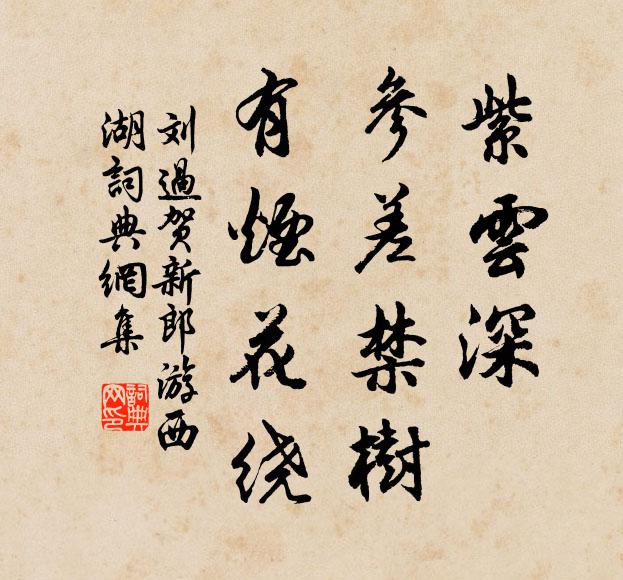 紫雲深
參差禁樹
有煙花绕
刘過贺新郎游西
湖詞典網集
詞典网印